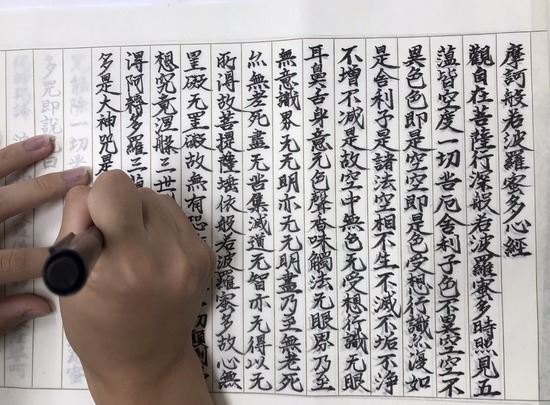 摩訶般若波羅蜜多心經
觀自在菩薩行深般若波羅蜜多時照見五
蘊皆空度一切苦厄舍利子色不異空空不
異色色即是空空即是色受想行識亦復如
是舍利子是諸法空相不生不滅不垢不淨
不增不減是故空中無色无受想行識无眼
耳鼻舌身意无色聲香味觸法无眼界乃至
無意識界无无明亦无无明盡乃至無老死
亦無老死盡无苦集滅道无智亦无得以无
所得故菩提薩埵依般若波羅蜜多故心無
罣礙无罣礙故無有恐 切顛倒
想究竟涅槃三世
得阿耨多羅三
多是大神咒是
咒能除一切苦
多咒即說咒曰